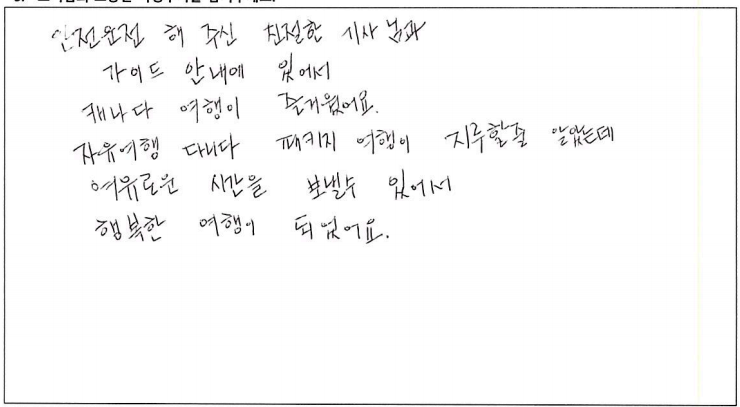 안전운전 해 주신 친절한 기사님과
가이드 안내에 있어서
캐나다 여행이 즐거웠어요.
자유여행 다니다 패키지 여행이 지루할줄 알았는데
여유로운 시간을 보낼수 있어서
행복한 여행이 되었어요.